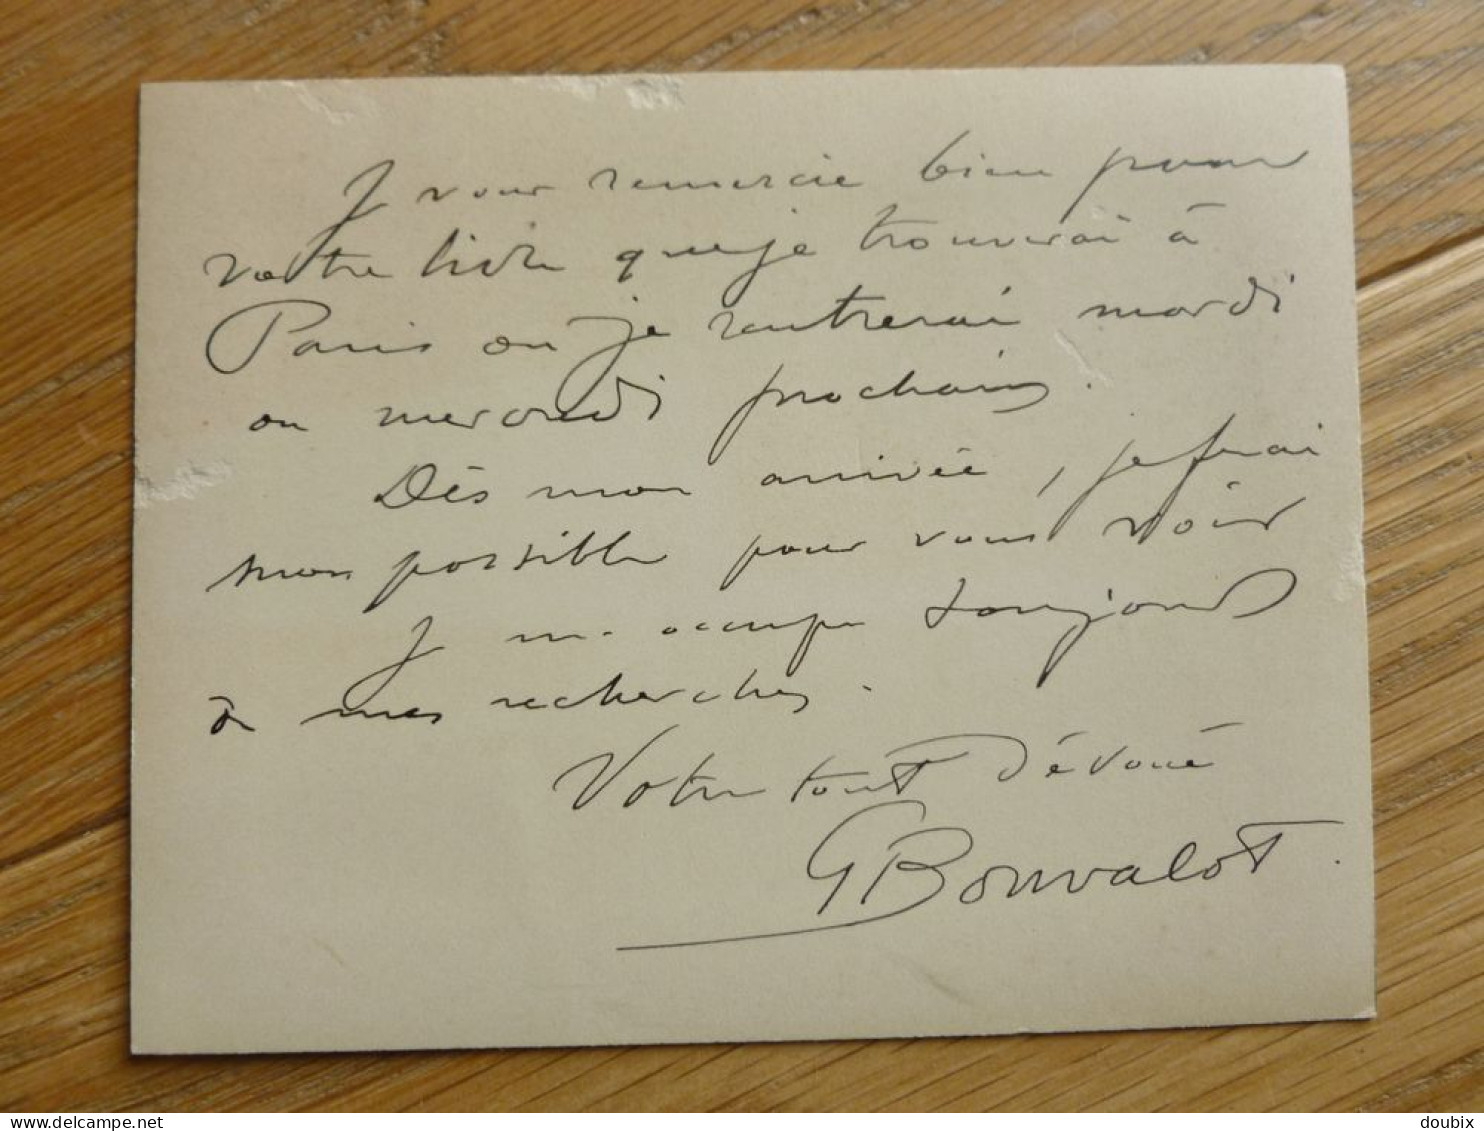 Je vous remercie bien pour
votre livre que je trouverai à
Paris où je rentrerai mardi
ou mercredi prochains.
Dès mon arrivée, je ferai
mon possible pour vous voir
Je m'occupe toujours
de mes recherches.
Votre tout dévoué
G Bonvalot
doubix